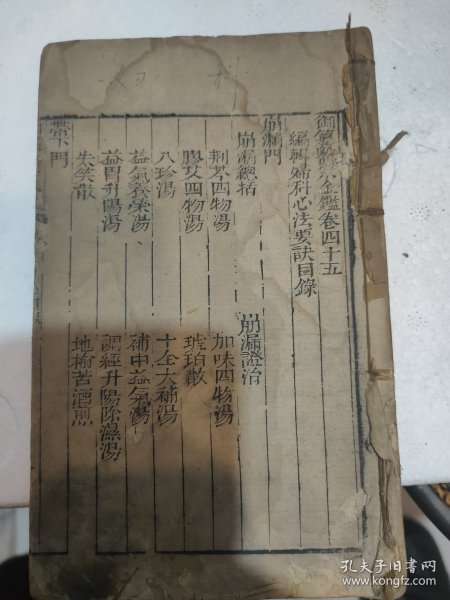 御纂醫宗金鑑卷四十五
編輯婦科心法要訣目錄
崩漏門
崩漏總括
崩漏證治
荆芩四物湯
加味四物湯
膠艾四物湯
琥珀散
八珍湯
十全大補湯
益氣養榮湯
補中益氣湯
益胃升陽湯
調經升陽除濕湯
失笑散
地榆苦酒煎
帶下門
孔夫子旧书网
www.kongfz.com